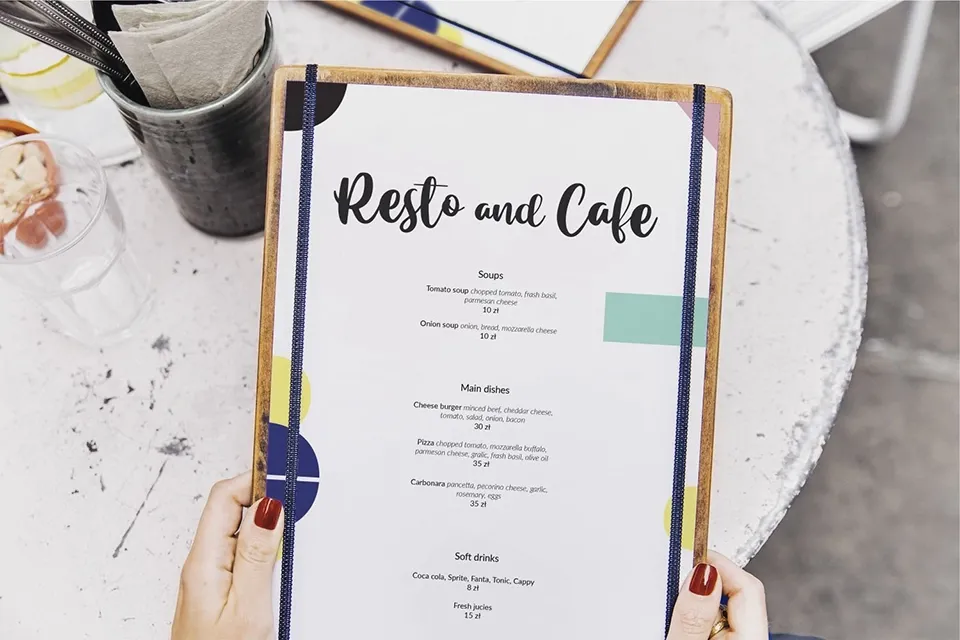 Resto and Cafe
Soups
Tomato soup chopped tomato, frash basil,
parmesan cheese
10 zł
Onion soup onion, bread, mozzarella cheese
10 zł
Main dishes
Cheese burger minced beef, cheddar cheese,
tomato, salad, onion, bacon
30 zł
Pizza chopped tomato, mozzarella buffalo,
parmesan cheese, gralic, frash basil, olive oil
35 zł
Carbonara pancetta, pecorino cheese, garlic,
rosemary, eggs
35 zł
Soft drinks
Coca cola, Sprite, Fanta, Tonic, Cappy
8 zł
Fresh jucies
15 zł